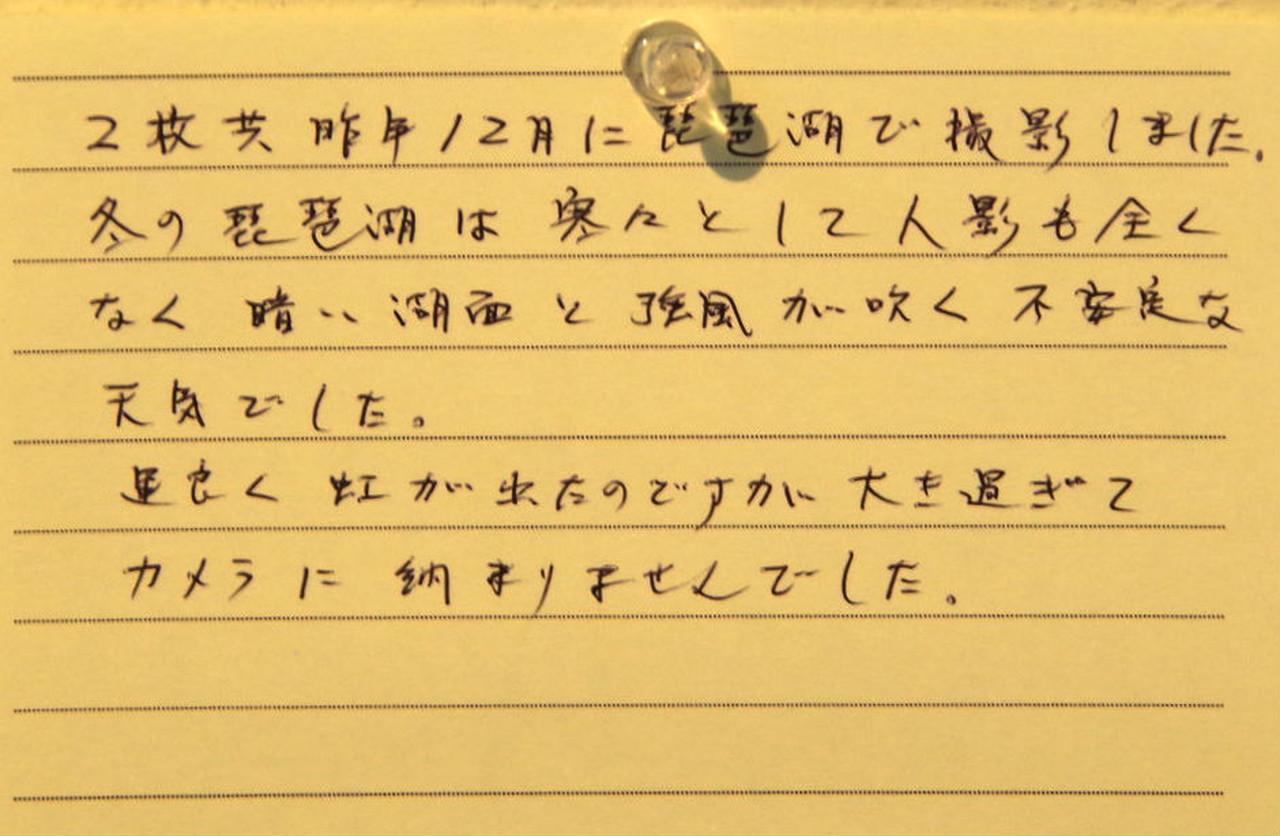 2枚共昨年12月に琵琶湖で撮影しました.
冬の琵琶湖は寒々として人影も全く
なく暗い湖面と強風が吹く不安定な
天気でした。
運良く虹が出たのですが大き過ぎて
カメラに納まりませんでした。